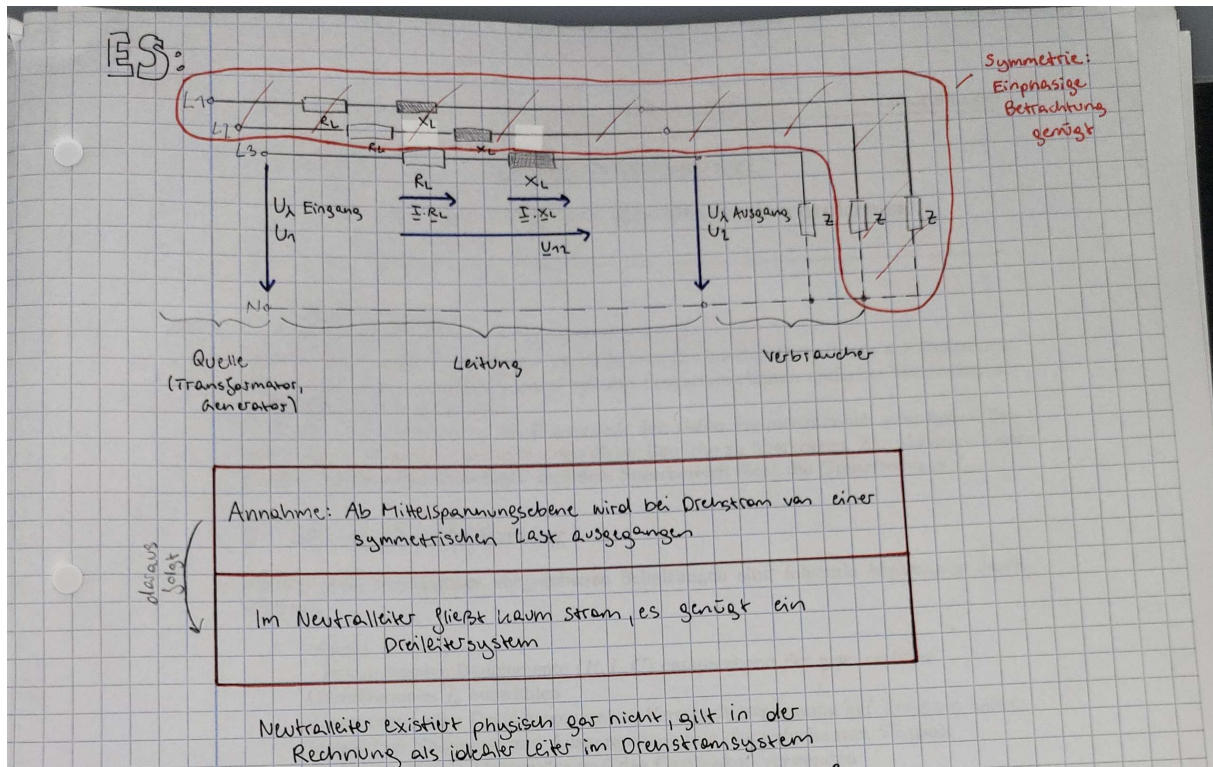 ES:
Symmetrie:
Einphasige
Betrachtung
genügt
L1
RL
XL
L2
RL
XL
L3
RL
XL
I·RL
I·XL
U12
Uλ Eingang
U1
Uλ Ausgang
U2
Z
Z
Z
N
Quelle
(Transformator,
Generator)
Leitung
Verbraucher
Annahme: Ab Mittelspannungsebene wird bei Drehstrom von einer
symmetrischen Last ausgegangen
daraus
folgt
Im Neutralleiter fließt kaum strom, es genügt ein
Dreileitersystem
Neutralleiter existiert physisch gar nicht, gilt in der
Rechnung als idealer Leiter im Drehstromsystem